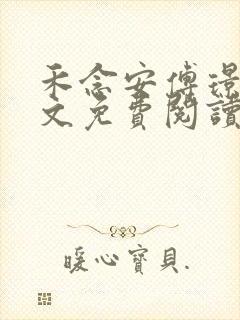 禾念安傅璟
文免費閱讀
暖心寶貝.